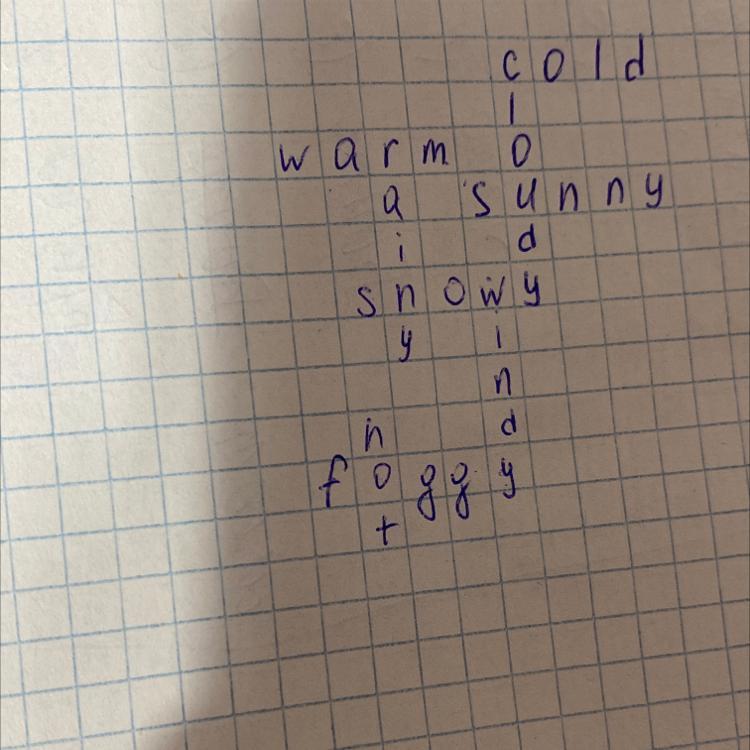 cold
l
warm o
a sunny
i d
snowy
y i
n
h d
foggy
t